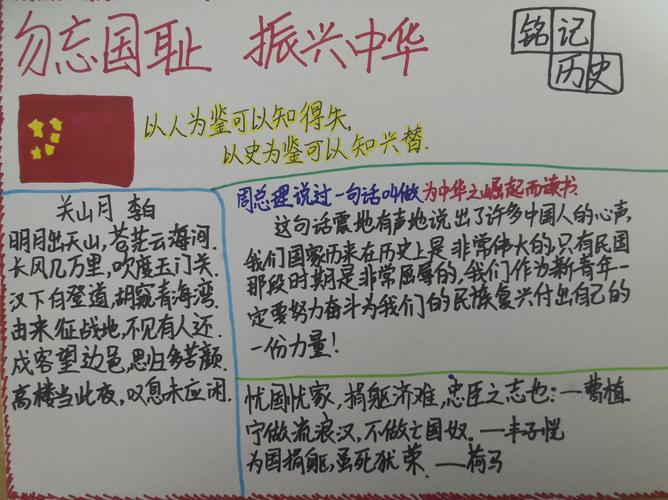 勿忘国耻 振兴中华
铭记
历史
以人为鉴可以知得失,
以史为鉴可以知兴替.
关山月 李白
明月出天山,苍茫云海间.
长风几万里,吹度玉门关.
汉下白登道,胡窥青海湾.
由来征战地,不见有人还.
戍客望边邑,思归多苦颜.
高楼当此夜,叹息未应闲.
周总理说过一句话叫做为中华之崛起而读书.
这句话震地有声地说出了许多中国人的心声,
我们国家历来在历史上是非常伟大的,只有民国
那段时期是非常屈辱的,我们作为新青年一
定要努力奋斗为我们的民族复兴付出自己的
一份力量!
忧国忘家,捐躯济难,忠臣之志也:—曹植
宁做流浪汉,不做亡国奴.—丰子恺
为国捐躯,虽死犹荣.—荷马